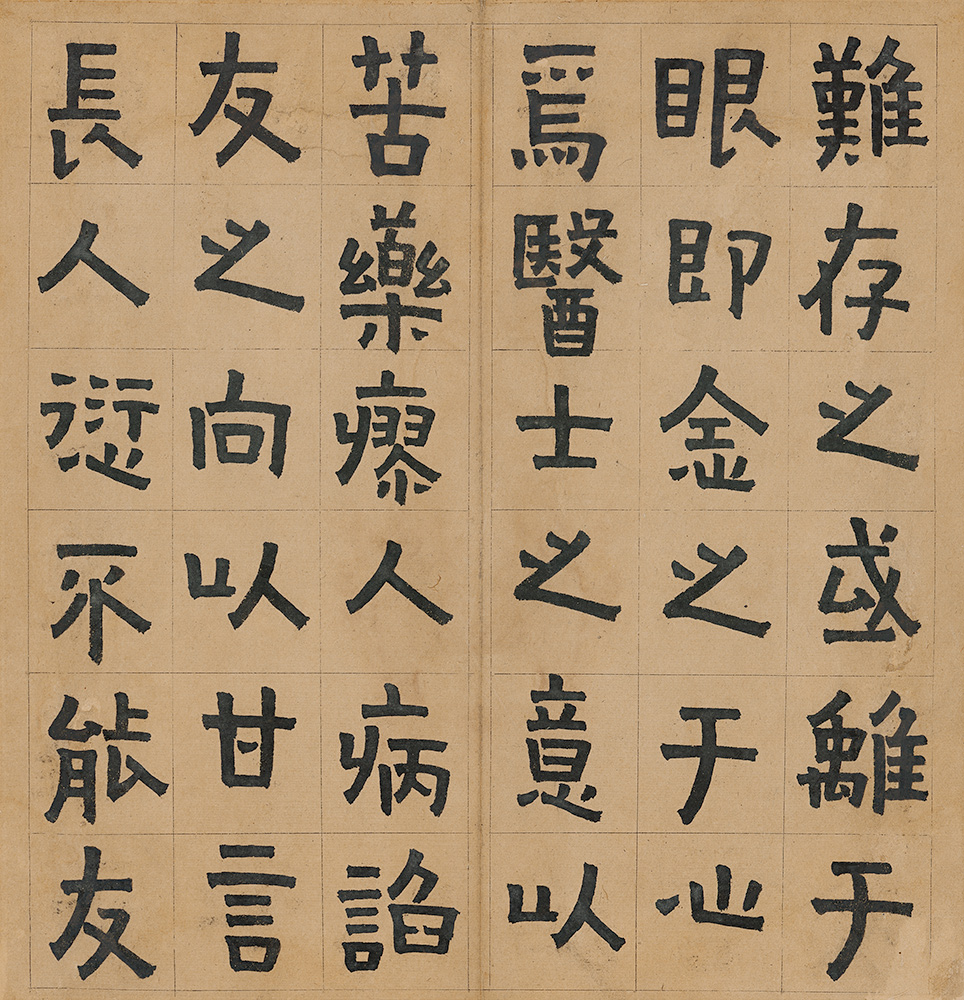 難存之或離于
眼即念之于心
焉醫士之意以
苦藥瘳人病諂
友之向以甘言
長人愆不能友